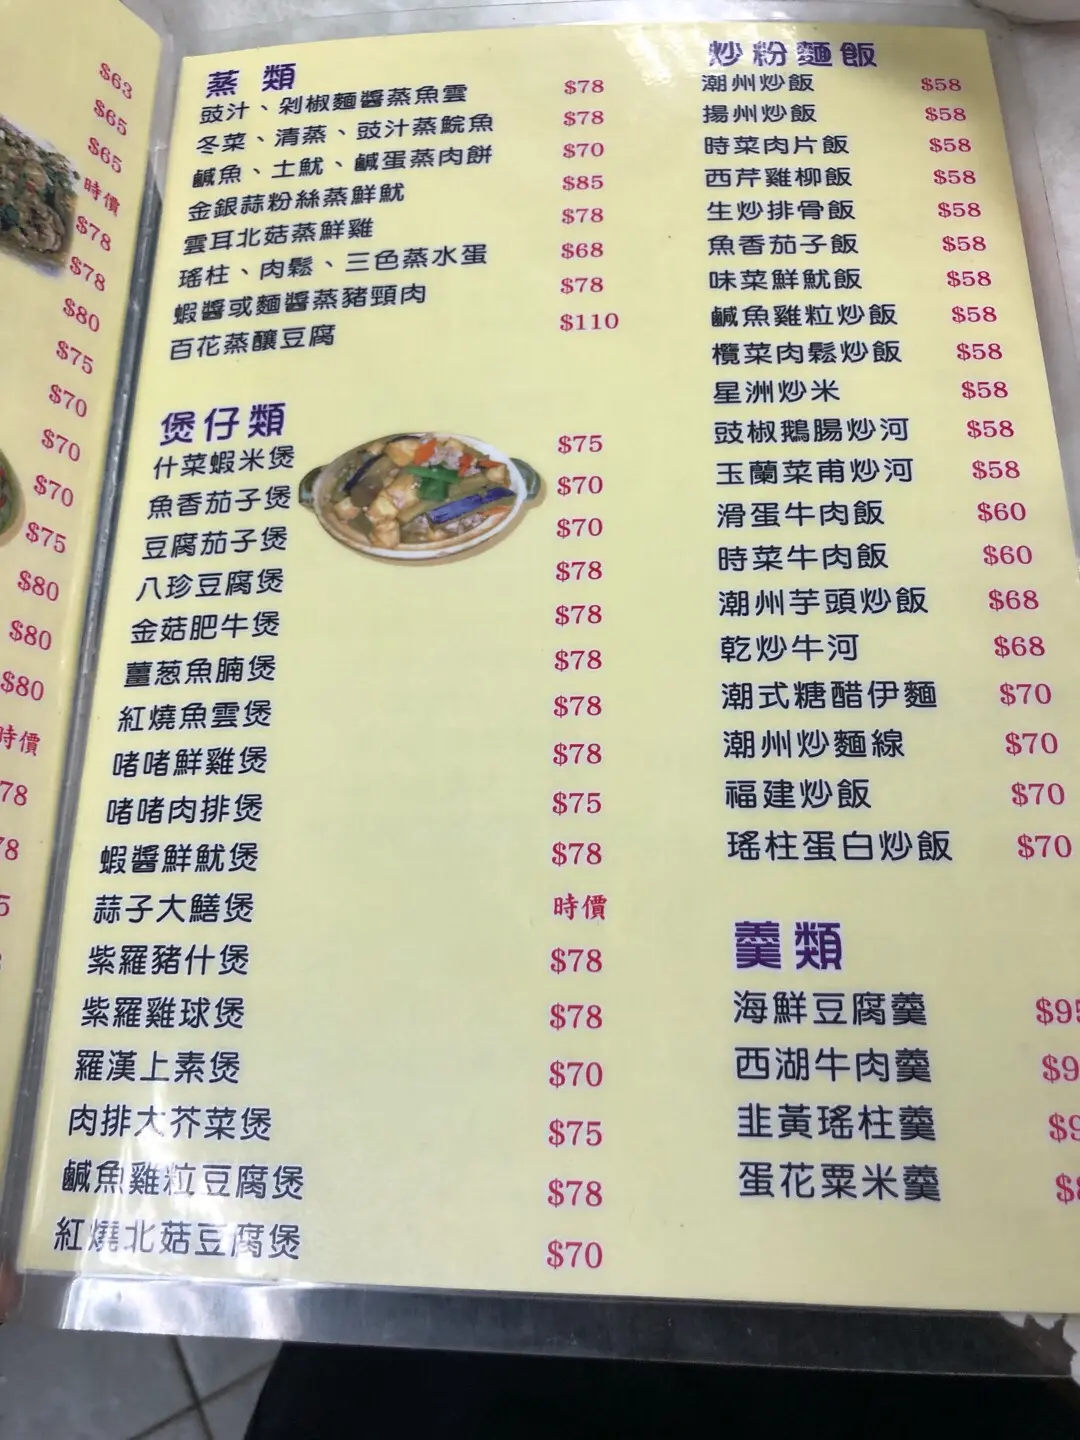 $63
$65
$65
時價
$78
$78
$80
$75
$70
$70
$70
$75
$80
$80
$80
時價
78
蒸類
豉汁、剁椒麵醬蒸魚雲 $78
冬菜、清蒸、豉汁蒸鯇魚 $78
鹹魚、土魷、鹹蛋蒸肉餅 $70
金銀蒜粉絲蒸鮮魷 $85
雲耳北菇蒸鮮雞 $78
瑤柱、肉鬆、三色蒸水蛋 $68
蝦醬或麵醬蒸豬頸肉 $78
百花蒸釀豆腐 $110
煲仔類
什菜蝦米煲 $75
魚香茄子煲 $70
豆腐茄子煲 $70
八珍豆腐煲 $78
金菇肥牛煲 $78
薑葱魚腩煲 $78
紅燒魚雲煲 $78
啫啫鮮雞煲 $78
啫啫肉排煲 $75
蝦醬鮮魷煲 $78
蒜子大鱔煲 時價
紫羅豬什煲 $78
紫羅雞球煲 $78
羅漢上素煲 $70
肉排大芥菜煲 $75
鹹魚雞粒豆腐煲 $78
紅燒北菇豆腐煲 $70
炒粉麵飯
潮州炒飯 $58
揚州炒飯 $58
時菜肉片飯 $58
西芹雞柳飯 $58
生炒排骨飯 $58
魚香茄子飯 $58
味菜鮮魷飯 $58
鹹魚雞粒炒飯 $58
欖菜肉鬆炒飯 $58
星洲炒米 $58
豉椒鵝腸炒河 $58
玉蘭菜甫炒河 $58
滑蛋牛肉飯 $60
時菜牛肉飯 $60
潮州芋頭炒飯 $68
乾炒牛河 $68
潮式糖醋伊麵 $70
潮州炒麵線 $70
福建炒飯 $70
瑤柱蛋白炒飯 $70
羹類
海鮮豆腐羹 $95
西湖牛肉羹 $9
韭黃瑤柱羹 $9
蛋花粟米羹 $8